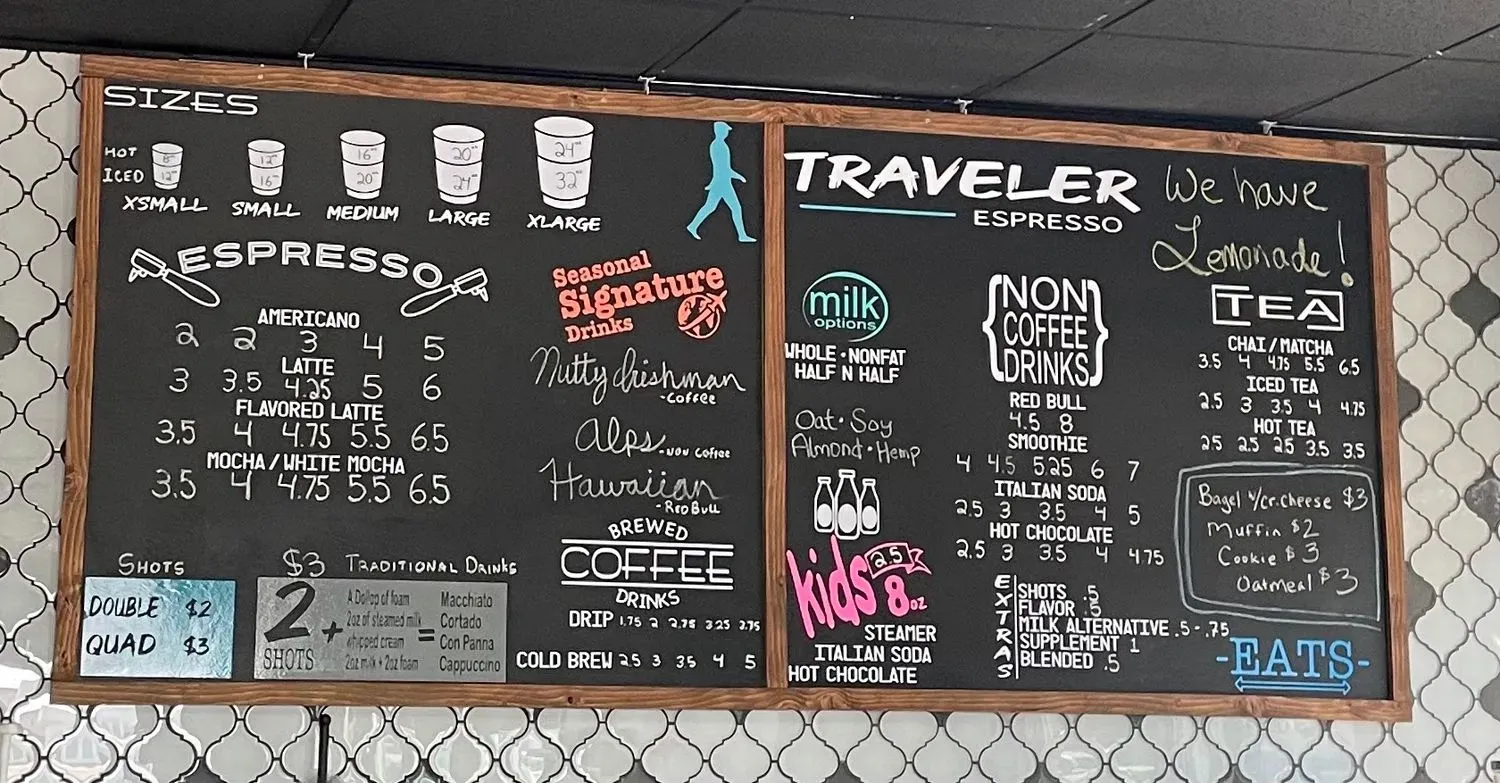 SIZES
HOT 8oz 12oz 16oz 20oz 24oz
ICED 12oz 16oz 20oz 24oz 32oz
XSMALL SMALL MEDIUM LARGE XLARGE
ESPRESSO
AMERICANO
2 2 3 4 5
LATTE
3 3.5 4.25 5 6
FLAVORED LATTE
3.5 4 4.75 5.5 6.5
MOCHA/WHITE MOCHA
3.5 4 4.75 5.5 6.5
SHOTS
DOUBLE $2
QUAD $3
$3 TRADITIONAL DRINKS
2 SHOTS +
A Dollop of foam = Macchiato
2oz of steamed milk = Cortado
whipped cream = Con Panna
2oz milk + 2oz foam = Cappuccino
Seasonal
Signature
Drinks
Nutty Irishman
-Coffee
Alps -NON Coffee
Hawaiian
-Red Bull
BREWED
COFFEE
DRINKS
DRIP 1.75 2 2.75 3.25 3.75
COLD BREW 2.5 3 3.5 4 5
TRAVELER
ESPRESSO
We have
Lemonade!
milk
options
WHOLE • NONFAT
HALF N HALF
Oat • Soy
Almond • Hemp
kids 2.5
8oz
STEAMER
ITALIAN SODA
HOT CHOCOLATE
{NON
COFFEE
DRINKS}
RED BULL
4.5 8
SMOOTHIE
4 4.5 5.25 6 7
ITALIAN SODA
2.5 3 3.5 4 5
HOT CHOCOLATE
2.5 3 3.5 4 4.75
EXTRAS
SHOTS .5
FLAVOR .5
MILK ALTERNATIVE .5-.75
SUPPLEMENT 1
BLENDED .5
TEA
CHAI/MATCHA
3.5 4 4.75 5.5 6.5
ICED TEA
2.5 3 3.5 4 4.75
HOT TEA
2.5 2.5 2.5 3.5 3.5
Bagel w/cr.cheese $3
Muffin $2
Cookie $3
Oatmeal $3
-EATS-